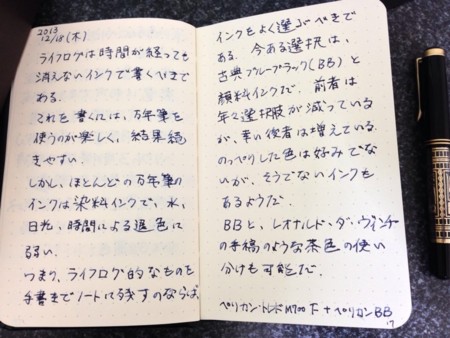 2013
12/18(木)
ライフログは時間が経っても
消えないインクで書くべきで
ある。
それを書くには、万年筆を
使うのが楽しく、結果続
きやすい。
しかし、ほとんどの万年筆の
インクは染料インクで、水、
日光、時間による退色に
弱い。
つまり、ライフログ的なものを
手書きでノートに残すのならば、
インクをよく選ぶべきで
ある。今ある選択は、
古典ブルーブラック(BB)と
顔料インクだ。前者は
年々選択肢が減っている
が、幸い後者は増えている。
のっぺりした色は好みでな
いが、そうでないインクも
あるようだ。
BBと、レオナルド・ダ・ヴィンチ
の手稿のような茶色の使い
分けも可能だ。
ペリカン・トレドM700 F + ペリカンBB
17